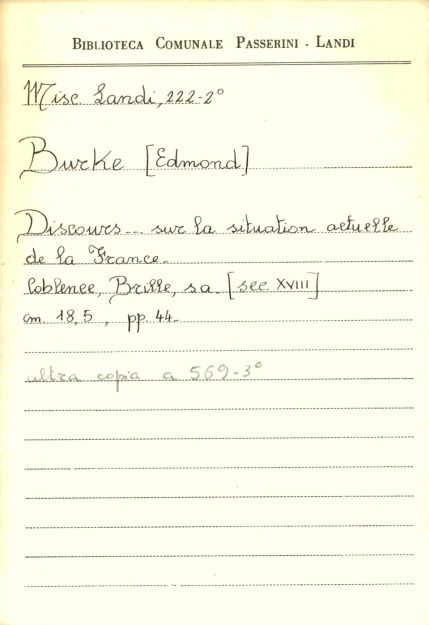 BIBLIOTECA COMUNALE PASSERINI - LANDI
Misc. Landi, 222-2°
Burke [Edmond]
Discours... sur la situation actuelle
de la France.
Coblence, Brille, s.a. [sec. XVIII]
cm. 18,5, pp. 44.
altra copia a 569-3°